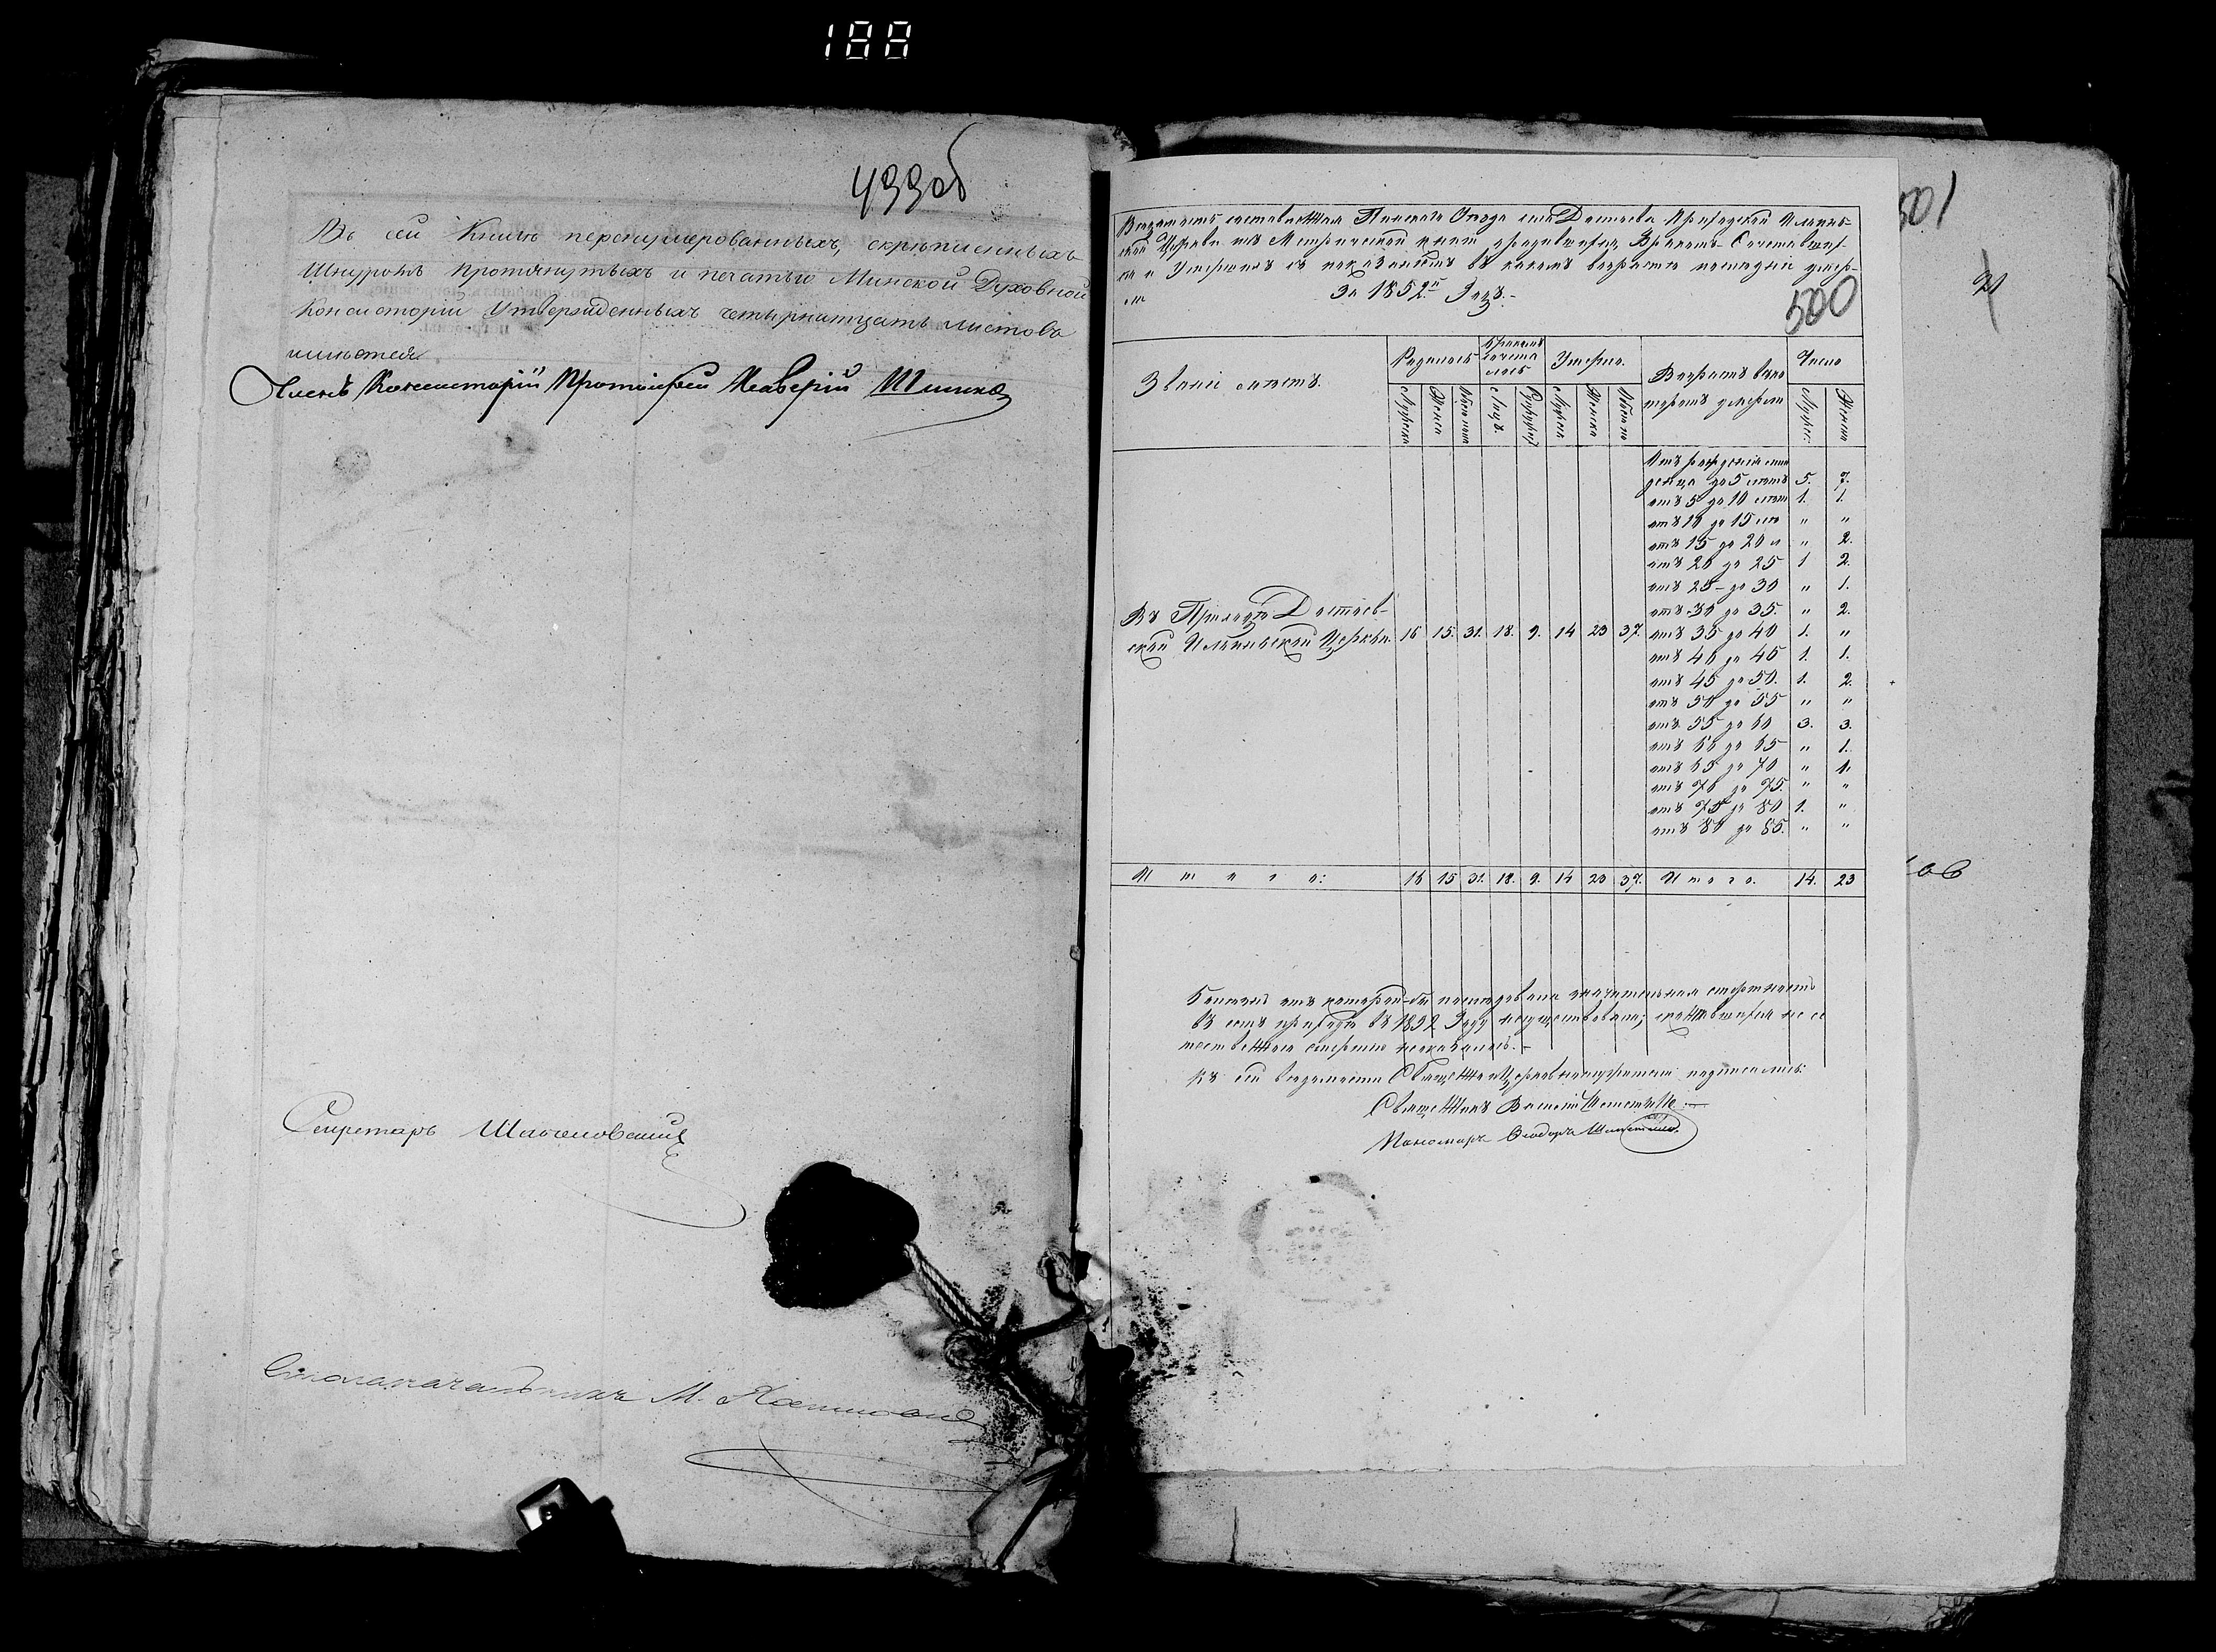 188
499об
Въ сей Книгѣ перенумерованныхъ, скрѣпленныхъ
Шнуромъ протянутыхъ и печатью Минской Духовной
Консисторіи Утвержденныхъ четырнатцать листовъ
имѣется.
Членъ Консисторіи Протоіерей
Секретарь
Столоначальникъ М.
501
500
Вѣдомость составленная Пинскаго Уѣзда села Достоева Приходской
Церкви изъ Метрической книги
и Умершихъ съ показаніемъ въ какомъ возрастѣ послѣдніе
За 1852й Годъ.
Родилось
Умерло
Число
Званіе мѣстъ.
Возрастъ въ
торомъ умерли
Мужеска Женска Обоего пола Лицъ. Супруж Мужеска Женска Обоего Мужес. Женска
Отъ рожденія мла
денца до 5 лѣтъ 5. 7.
отъ 5 до 10 лѣтъ 1. 1.
отъ 10 до 15 лѣ " "
отъ 15 до 20 л " 2.
отъ 20 до 25 1 2.
отъ 25 до 30 " 1.
отъ 30 до 35. " 2.
Въ Приходѣ Достоев-
ской Церкви. 16 15. 31. 18. 9. 14 23 37. отъ 35 до 40 1. "
отъ 40 до 45 1. 1.
отъ 45 до 50. 1. 2.
отъ 50 до 55 " "
отъ 55 до 60 3. 3.
отъ 60 до 65 " 1.
отъ 65 до 70 " 1.
отъ 70 до 75. " "
отъ 75 до 80 1. "
отъ 80 до 85. " "
Итого: 16 15 31. 18. 9. 14 23 37. Итого. 14. 23
отъ которой-бы послѣдовала значительная смертность
въ семъ приходѣ въ 1852 Году несуществовало; скончавшихся не е
стественною смертію неоказалось.-
Къ сей вѣдомости Священноцерковнослужители подписались:
Священникъ Василій
Пономарь Ѳеодоръ